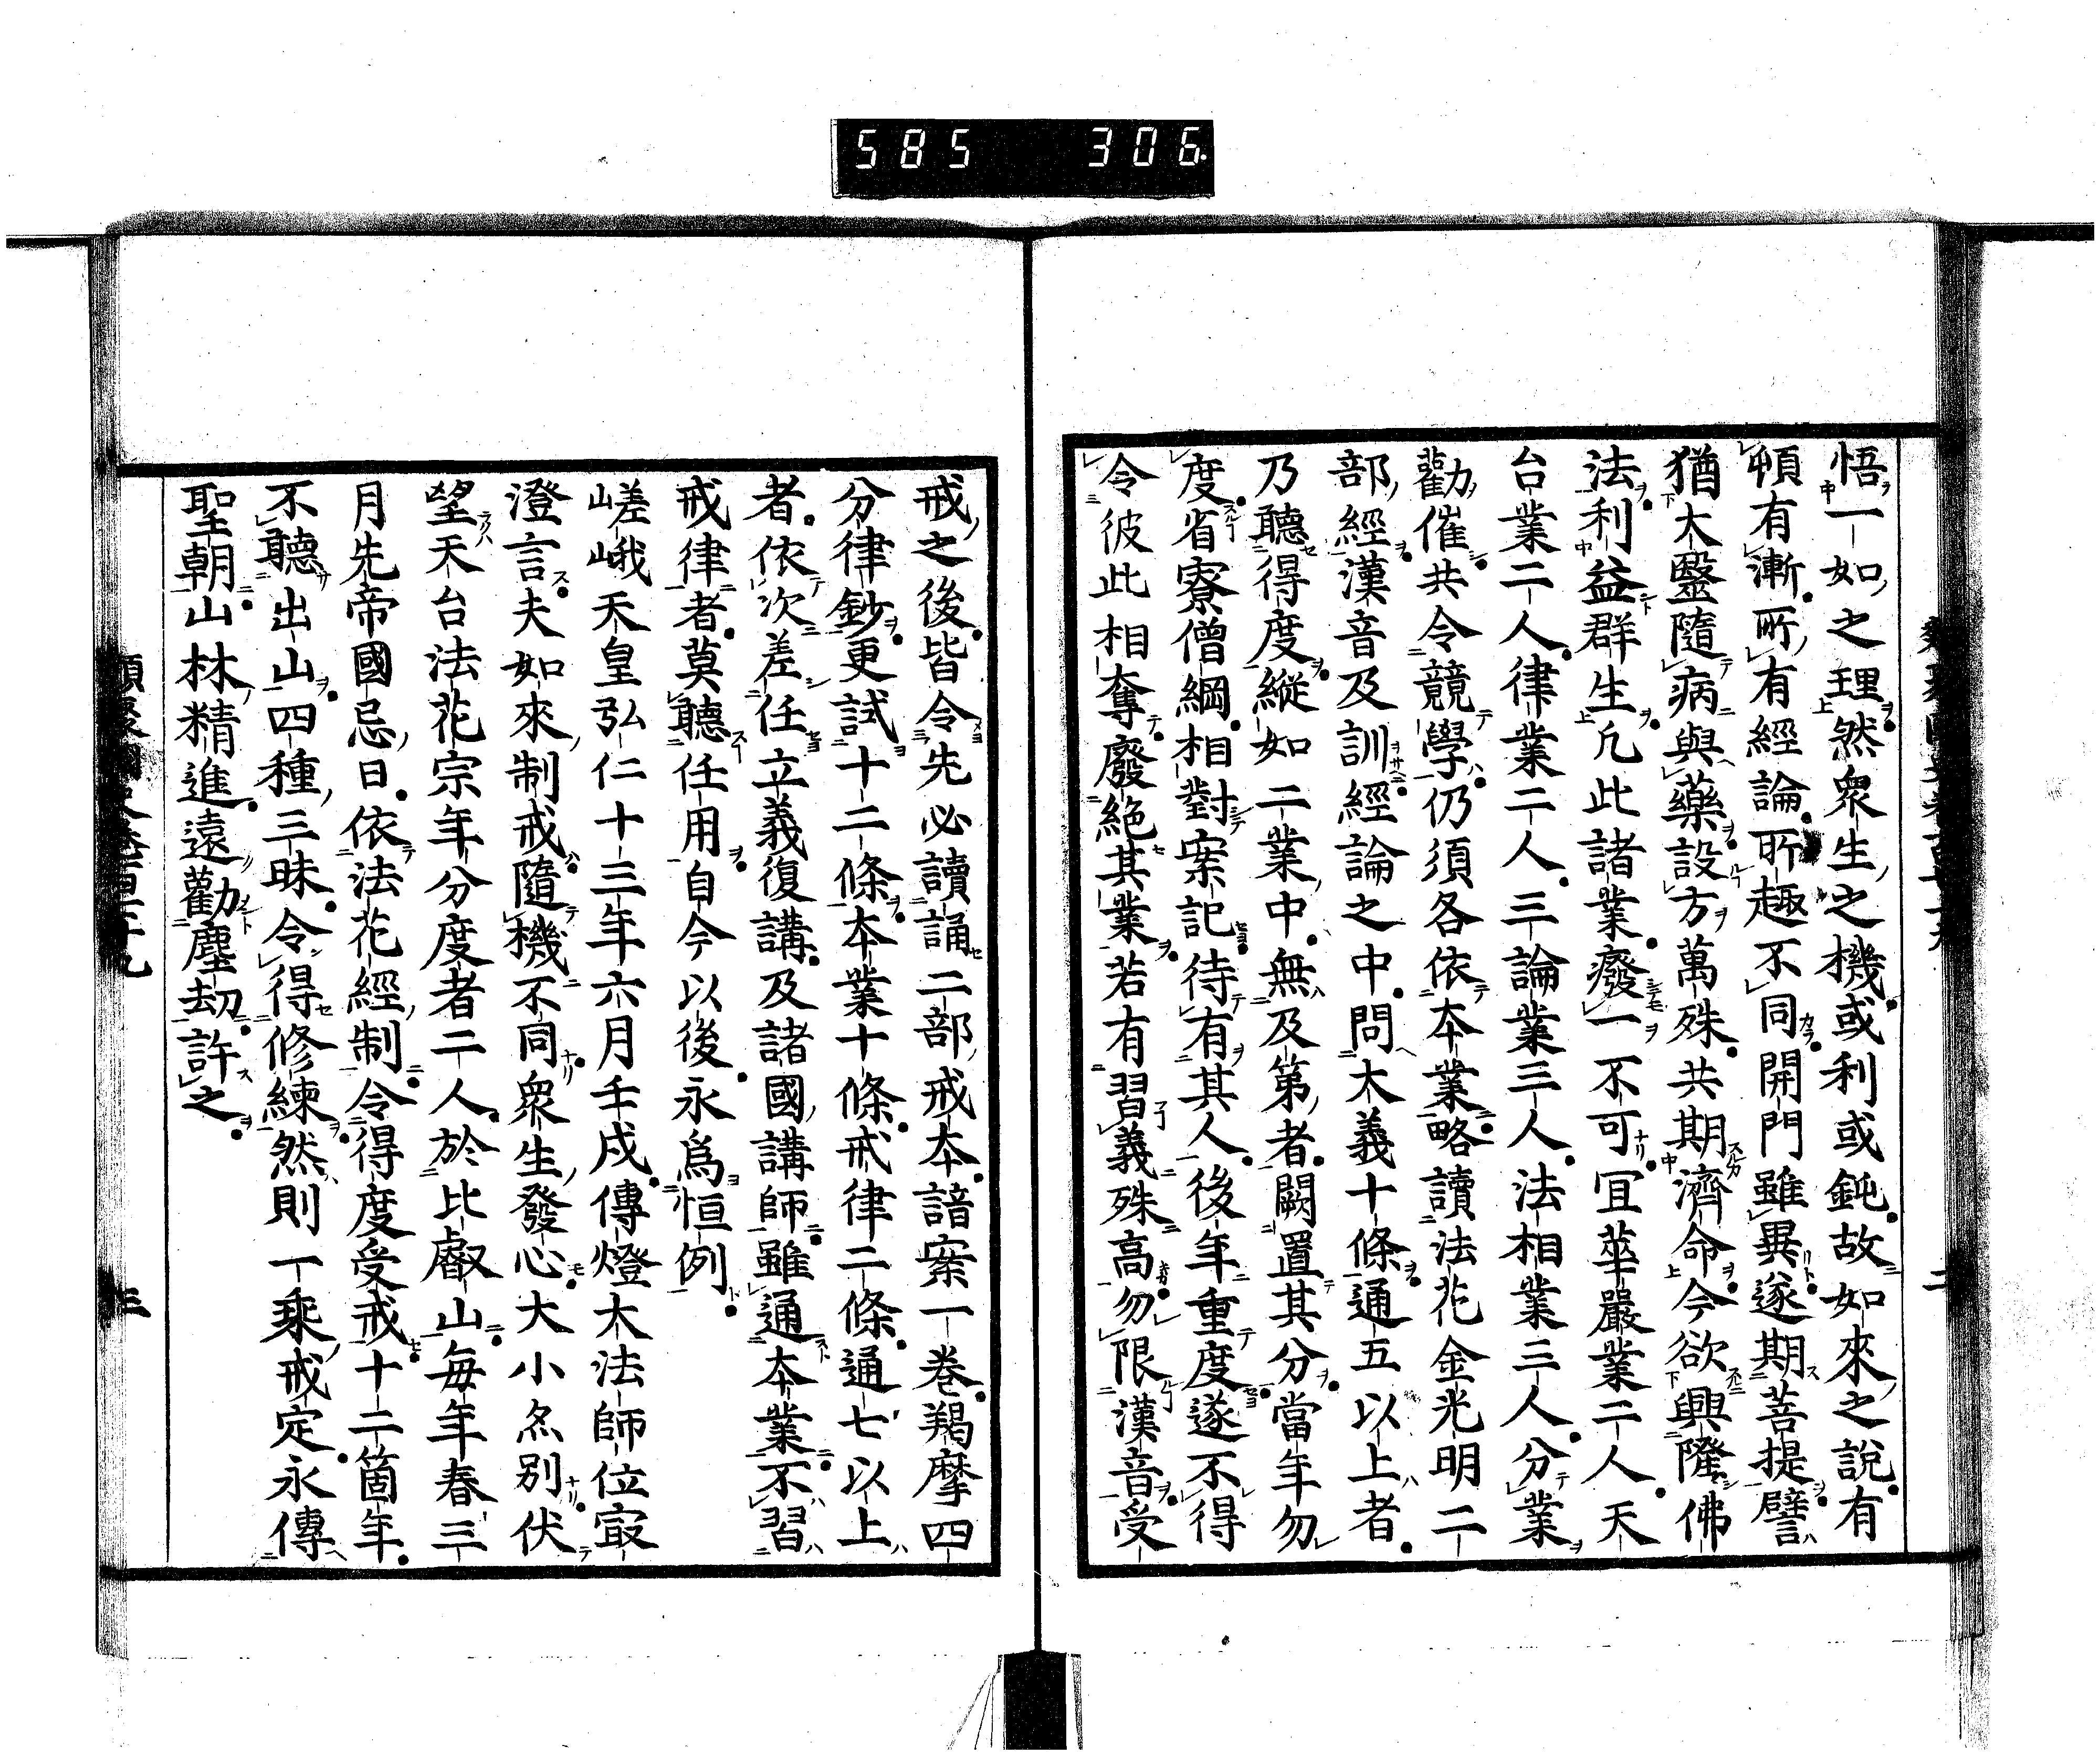 585 306
悟一如之理然衆生之機或利或鈍故如來之說有
頓有漸所有經論所趣不同開門雖異遂期菩提譬
猶大毉隨病與藥設方萬殊共期濟命今欲興隆佛
法利益群生凢此諸業癈一不可冝華嚴業二人天
台業二人律業二人三論業三人法相業三人分業
勸催共令競學仍須各依本業略讀法花金光明二
部經漢音及訓經論之中問大義十條通五以上者
乃聽得度縱如二業中無及第者闕置其分當年勿
度省寮僧綱相對案記待有其人後年重度遂不得
令彼此相奪廢絶其業若有習義殊高勿限漢音受
戒之後皆令先必讀誦二部戒本諳案一卷羯摩四
分律鈔更試十二條本業十條戒律二條通七以上
者依次差任立義復講及諸國講師雖通本業不習
戒律者莫聽任用自今以後永爲恒例
嵯峨天皇弘仁十三年六月壬戌傳燈大法師位㝡
澄言夫如來制戒隨機不同衆生發心大小亦別伏
望天台法花宗年分度者二人於比叡山每年春三
月先帝國忌日依法花經制令得度受戒十二箇年
不聽出山四種三昧令得修練然則一乘戒定永傳
聖朝山林精進遠勸塵劫許之
三